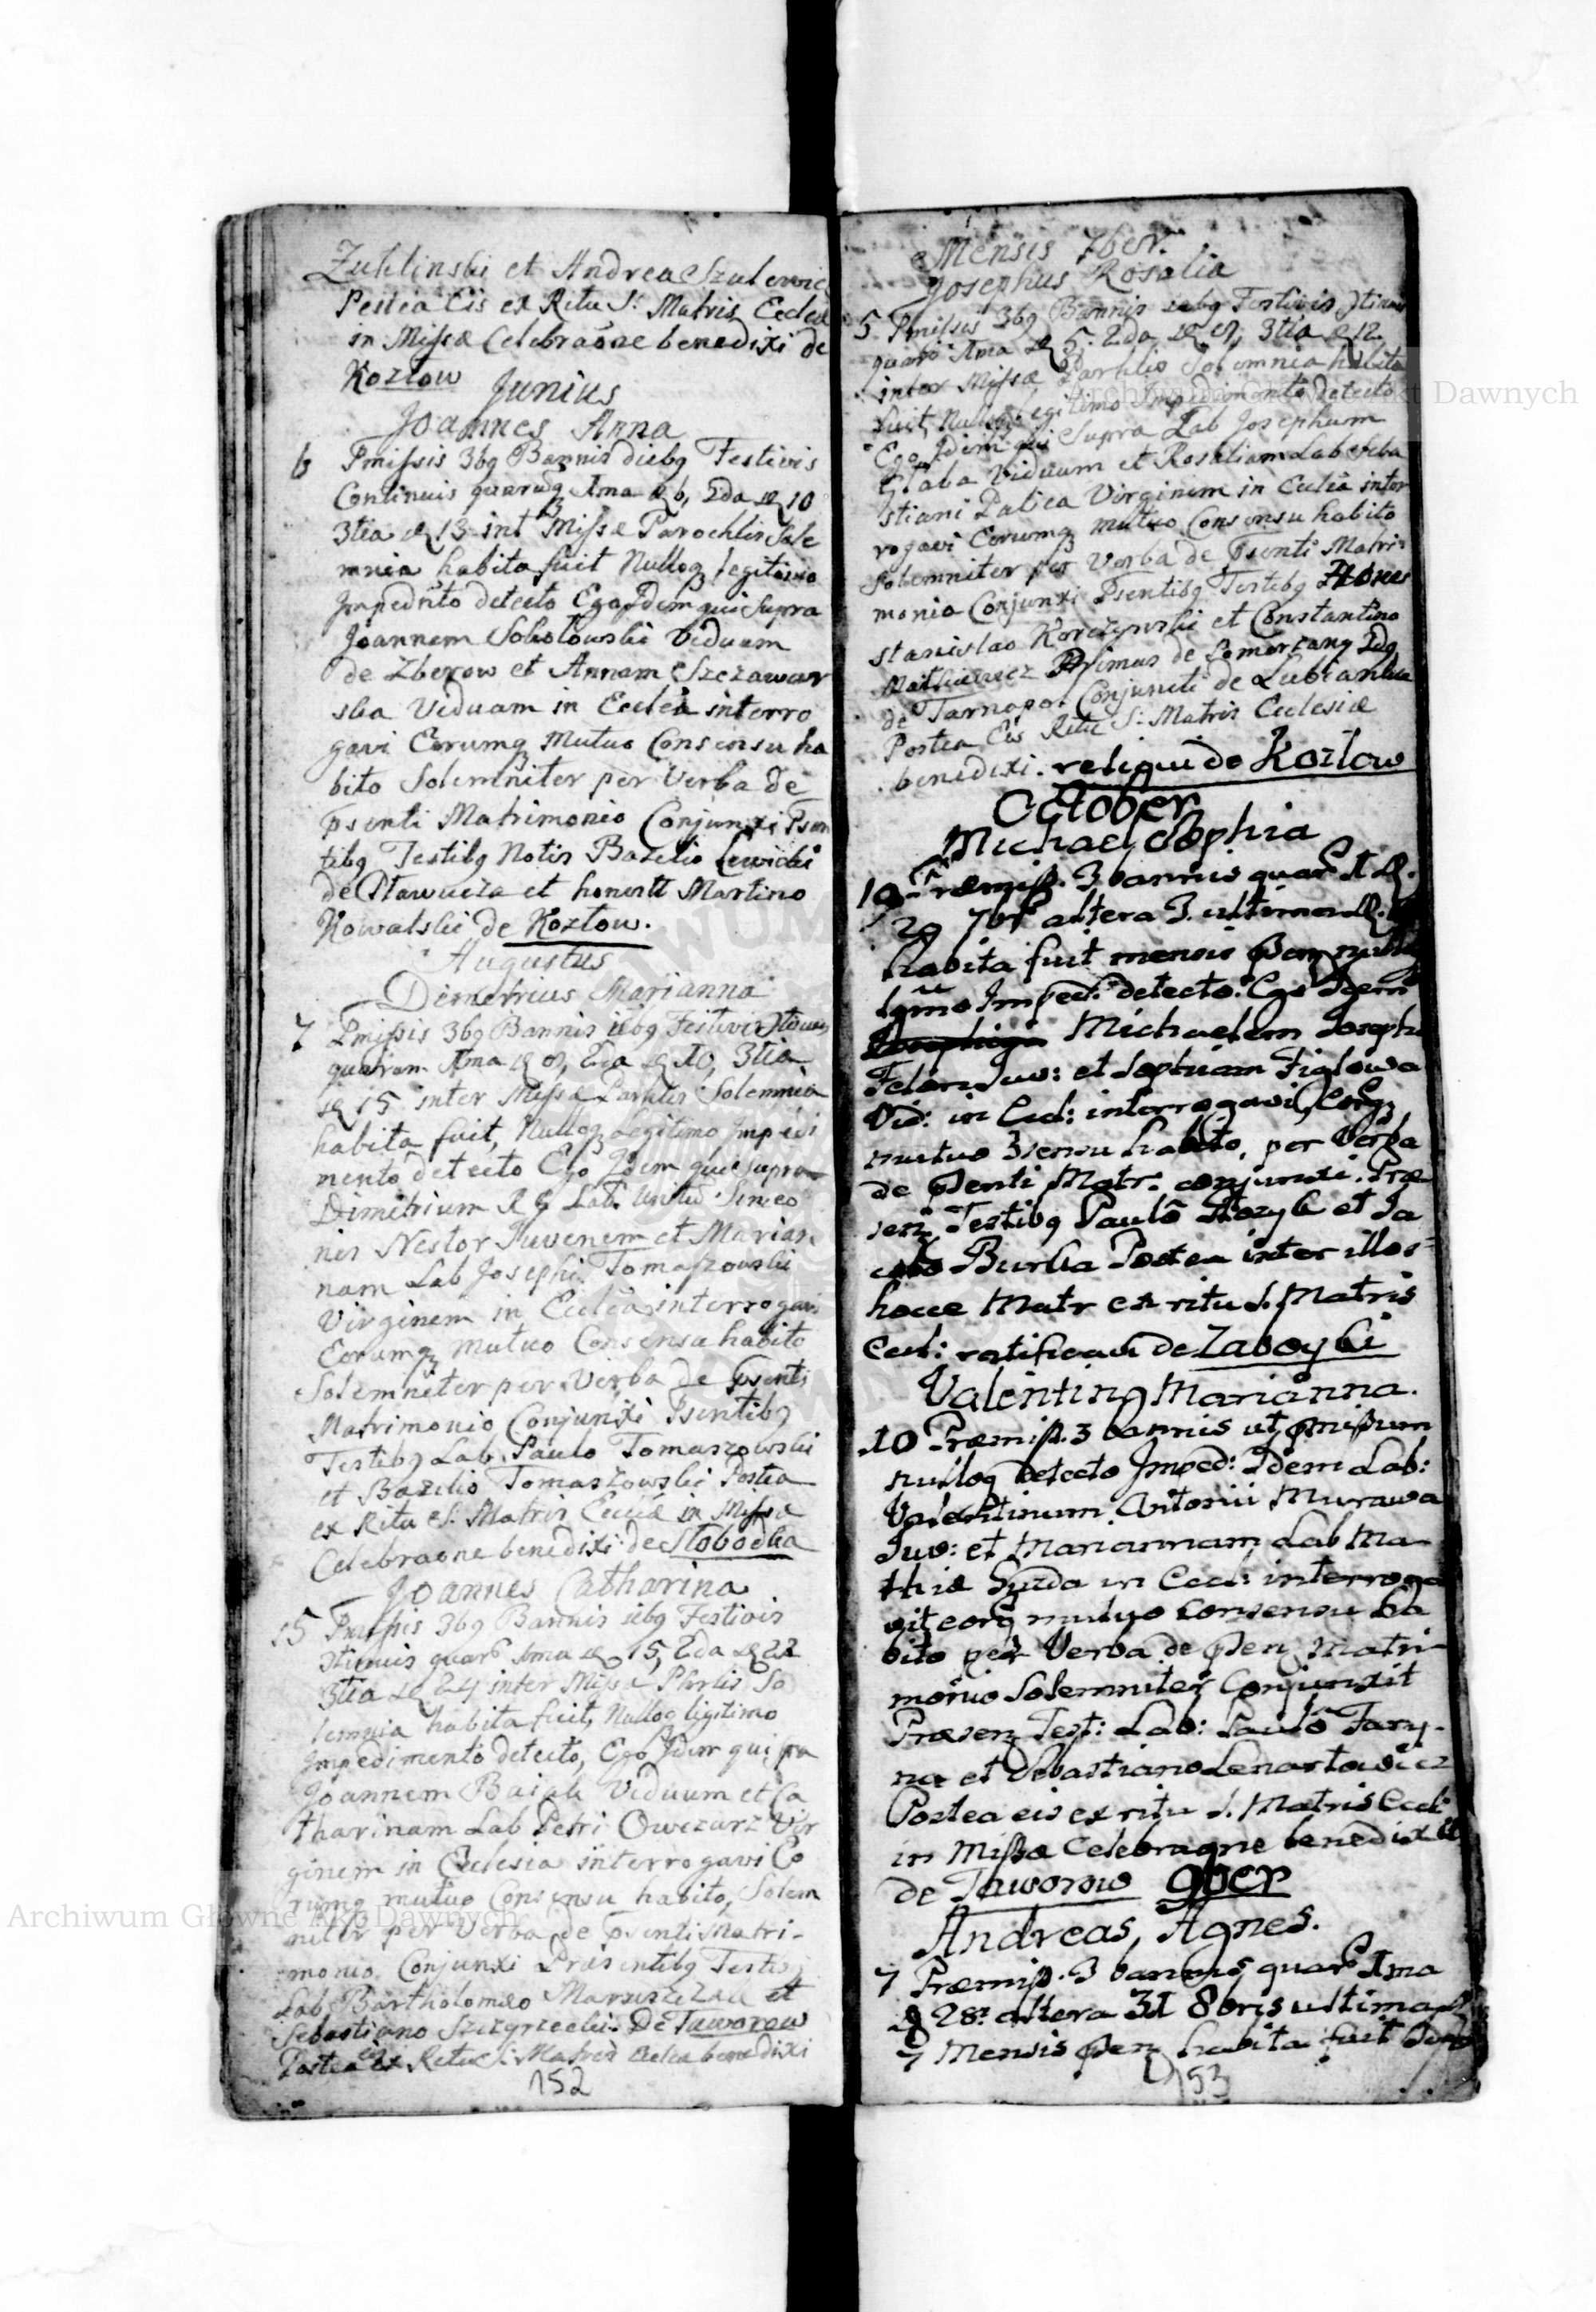 Zuklinski et Andrea Szulewic
Postea Eis ex Ritu S: Matris Eccleæ
in Missæ Celebraōne benedixi de
Kozłow
Junius
Joannes Anna
6 Pmissis 3bq Bannis diebq Festivis
Continuis quarūq Ima 6, 2da 10
3tia 13 int Missæ Parochlis Sole
mnia habita fuit Nulloq legitimo
Impedīto detecto Ego Idem qui Supra
Joannem Sokołowski Viduum
de Zberow et Annam Szczawur
ska Viduam in Ecclēa interro
gavi Eorumq Mutuo Consensu ha
bito Solemniter per Verba de
psenti Matrimonio Conjunxi Psen
tibq Testibq Notis Bazilio Lewicki
de Pławucza et honestt Martino
Kowalski de Kozłow.
Augustus
Demetrius Marianna
7 Pmissis 3bq Bannis iebq Festivis
quarum Ima 2da 10, 3tia
15 inter Missæ Parhlis Solemnia
habita fuit, Nulloq Legitimo Impedi
mento detecto Ego Idem qui supra
Dimitrium Lab.
nis Nestor Juvenem et Marian
nam Lab Josephi Tomaszowski
Virginem in Ecclēa interrogavi
Eorumq mutuo Consensu habito
Solemniter per Verba de psenti
Matrimonio Conjunxi Psentibq
Testibq Lab Paulo Tomaszowski
et Bazilio Tomaszowski Postea
ex Ritu S: Matris Eccleæ in Missæ
Celebraōne benedixi de Słobodka
Joannes Catharina
15 Pmissis 3bq Bannis iebq Festivis
quar Ima 15, 2da 22
3tia 24 inter Missæ Phrlis So
lemnia habita fuit, Nulloq legitimo
Impedimento detecto, Ego Idem qui
Joannem Baiak Viduum et Ca
tharinam Lab Petri Owczarz Vir
ginem in Ecclesia interrogavi Eo
rumq mutuo Consensu habito, Solem
niter per Verba de psenti Matri-
monio Conjunxi Præsentibq Testib
Lab Bartholomæo et
Sebastiano De Jaworow
Postea Ritu S: Matris Ecclea benedixi
152
Mensis 7ber.
Josephus Rosalia
5 Pmissis 3bq Bannis iebq Festivis
quarū Ima 5. 2da 3tia 12.
inter Missæ Parhlis Solemnia habita
fuit, Nulloq Legitimo Impedimento detecto
Ego Idem qui Supra Lab Josephum
Viduum et Rosaliam Lab Seba
stiani Palica Virginem in Ecclēa inter
rogavi Eorumq mutuo Consensu habito
Solemniter per Verba de Psenti Matri-
monio Conjunxi Psentibq Testibq
Stanislao Korczynski et Constantino
Primus de Pomorzany 2dq
de Tarnopol Conjuncti de Lubianka
Postea Eis Ritu S: Matris Ecclesiæ
benedixi. reliqui de Kozlow
October
Michael Sophia
10 Præmiss. 3 bannis quar
29 7br altera 3. ultima
habita fuit mensis nulloq
lgmo Imped: detecto. Ego Idem
Michaelem Josephi
Juv: et Sophiam Figlowa
Vid: in Eccl: interrogavi, Eorq
mutuo 3sensu habito, per Verba
de psenti Matr: conjunxi. Præ
sen Testibq Paulō et Ja
cobo Burka Postea inter illos
hocce Matr ex ritu S. Matris
Eccl: ratificavi de Zaboyki
Valentinq Marianna.
10 Præmiss. 3 bannis ut
nulloq detecto Imped: Idem Lab:
Valentinum Antonii Murawa
Juv: et Mariannam Lab Ma
thiæ Guda in Eccl: interroga
vit eorq mutuo consensu ha
bito per Verba de psen Matri-
monio Solemniter Conjunxit
Præsen Test: Lab: Paulō Tary-
na et Sebastiano Lenartowicz
Postea eis ex ritu S. Matris Eccl:
in Missæ Celebraōne benedixit
de Jaworow 9ber
Andreas, Agnes.
7 Præmiss. 3 bannis quar Ima
28 altera 31 8bris ultima
7 Mensis psen habita fuit
153
Archiwum Główne Akt Dawnych
Archiwum Główne Akt Dawnych